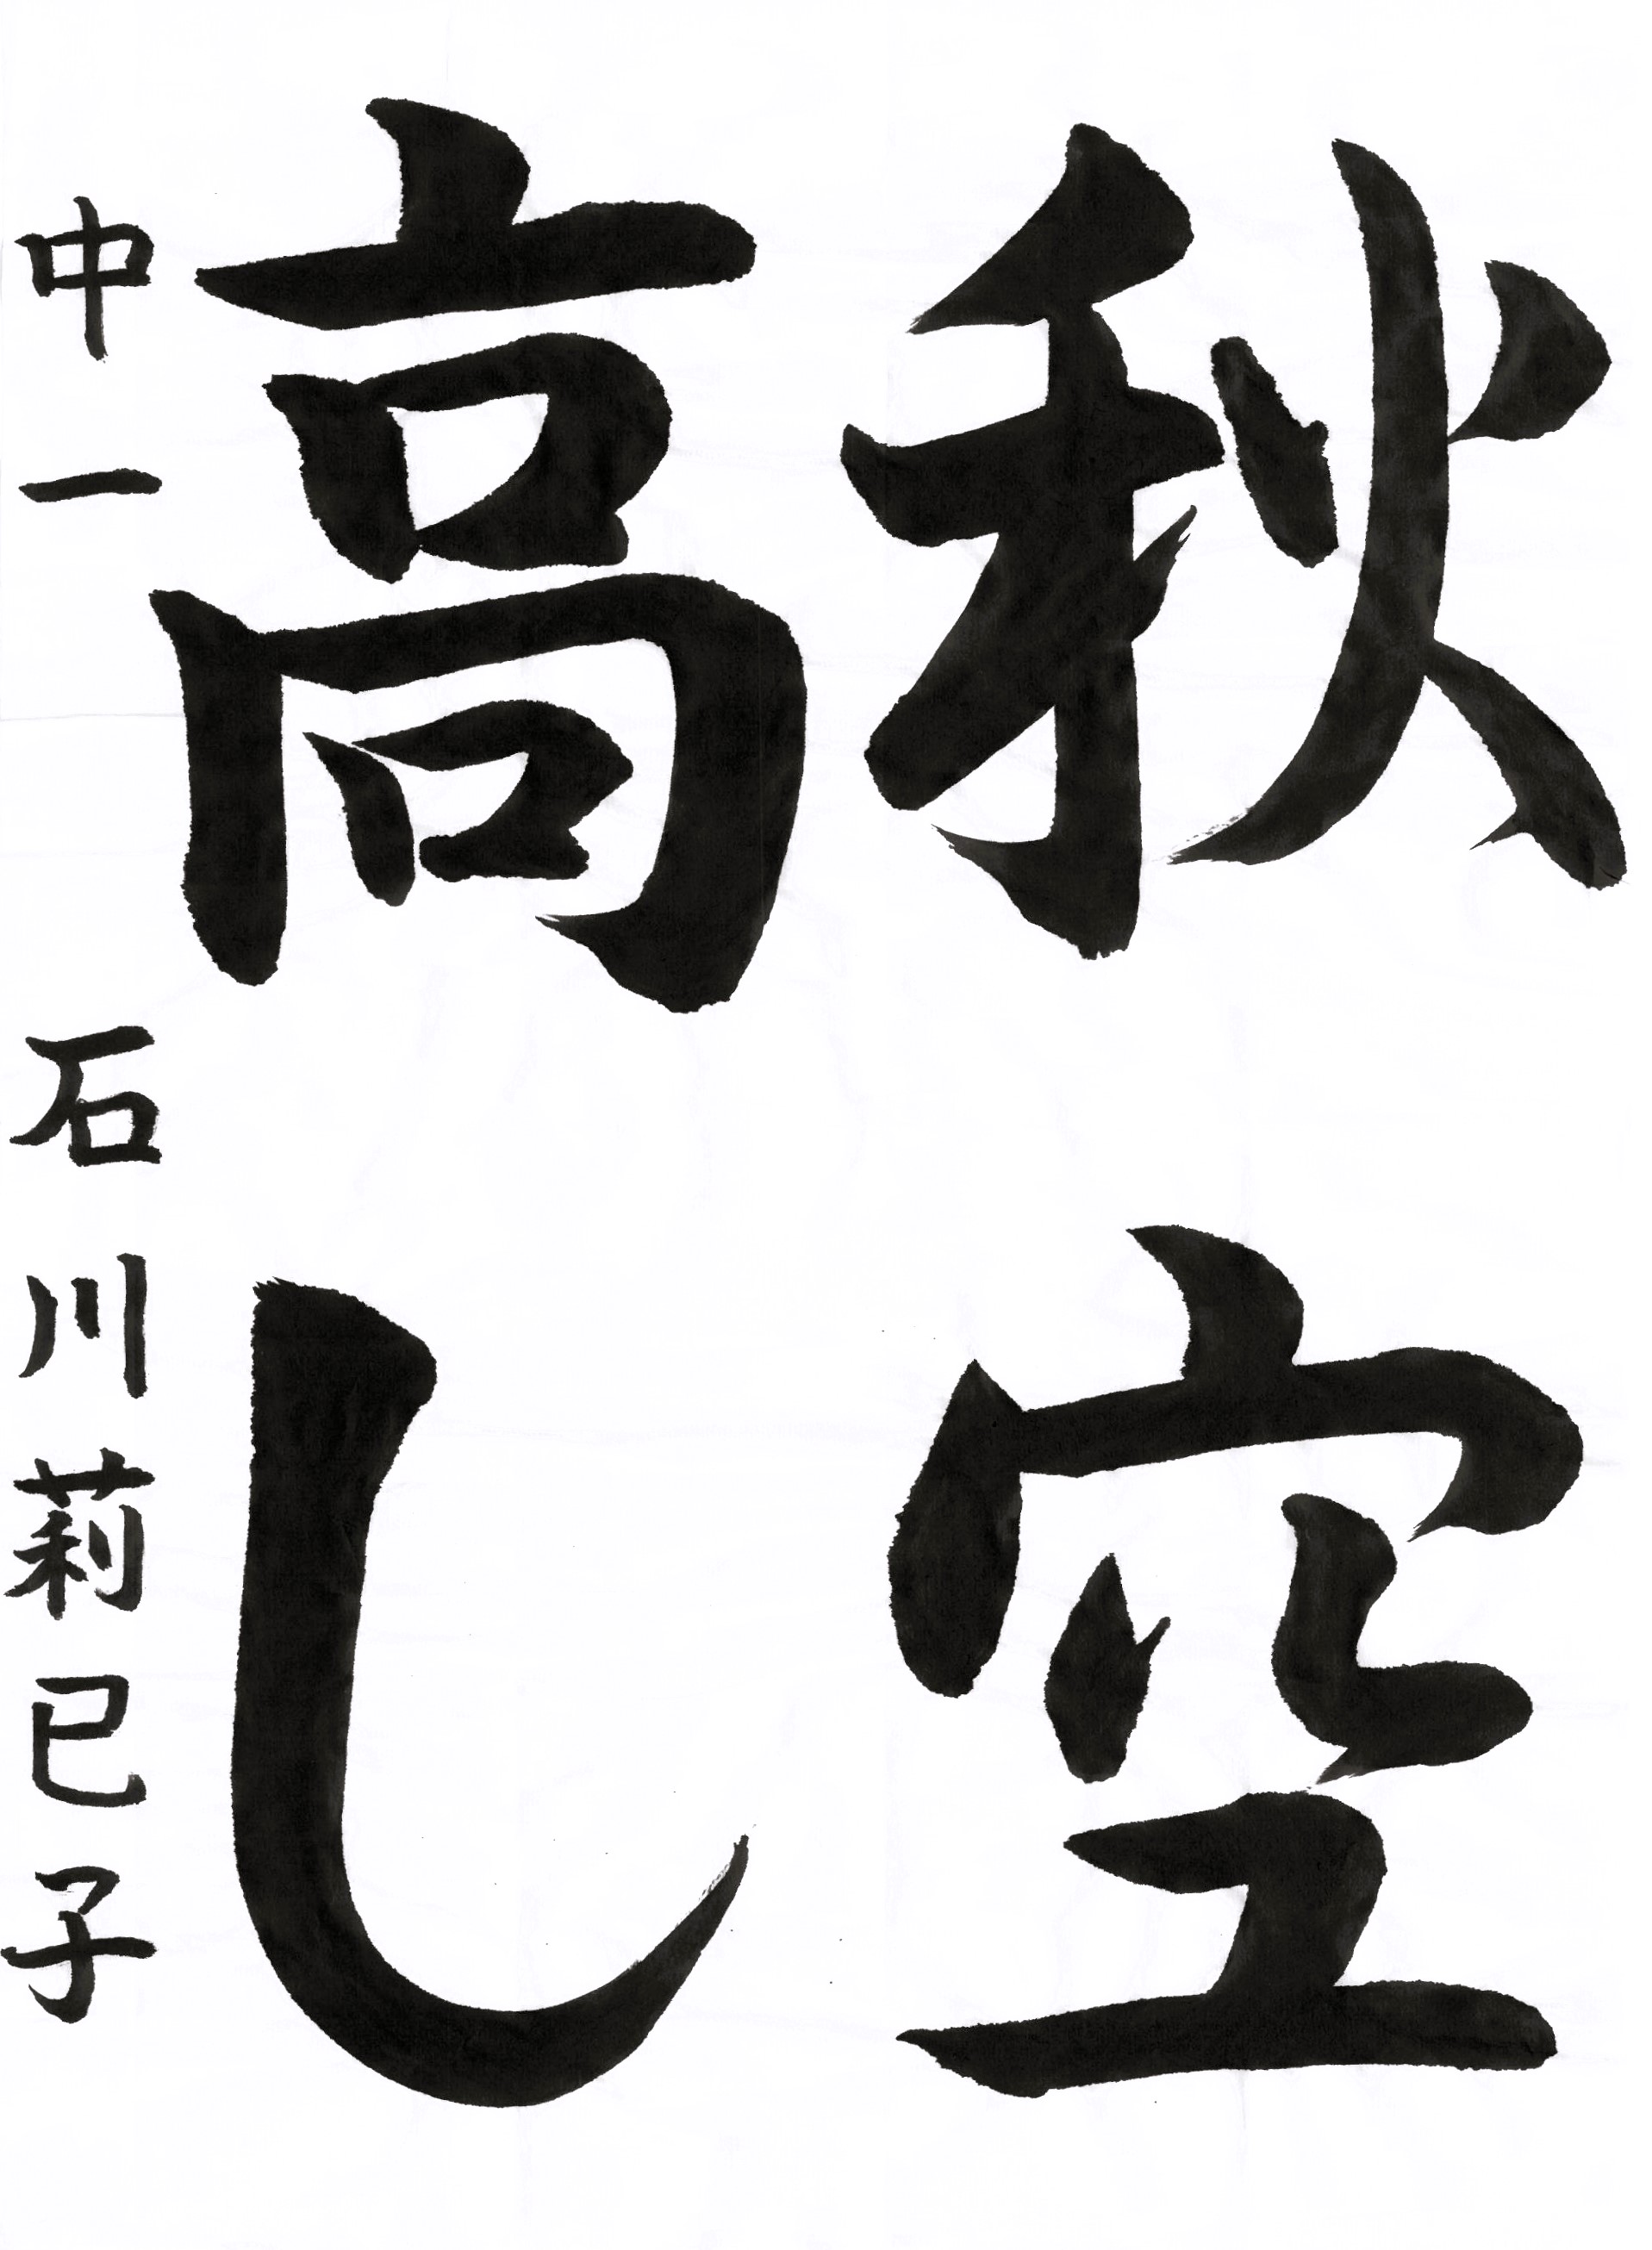 秋空
高し
中一 石川莉巳子